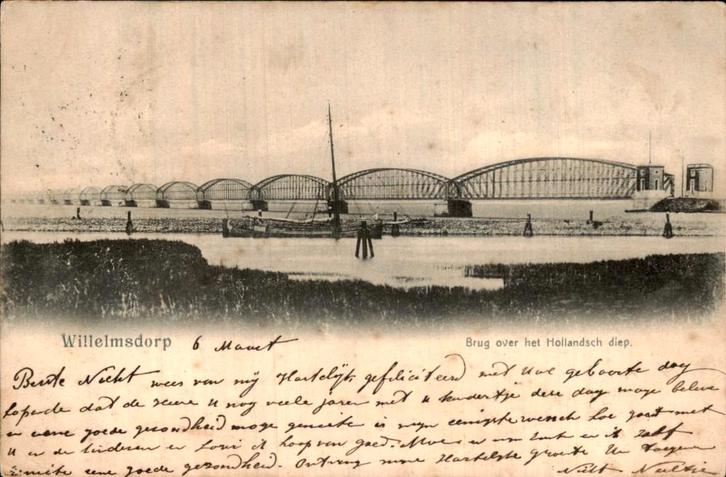 Willelmsdorp 6 Maart
Brug over het Hollandsch diep.
Beste Nicht wees van mij Hartelijk gefeliciteerd met Uwe geboorte dag
hopende dat de Heere U nog veele jaren met U kindertje deze dag mage beleve
en eene goede gezondheid moge geniete is mijn eenigste wensch hoe gaat met
U en de kinderen en ik hoop van goed en ik zelf
geniete eene goede gezondheid. Ontvang mijne Hartelijke groete Uw
Nicht